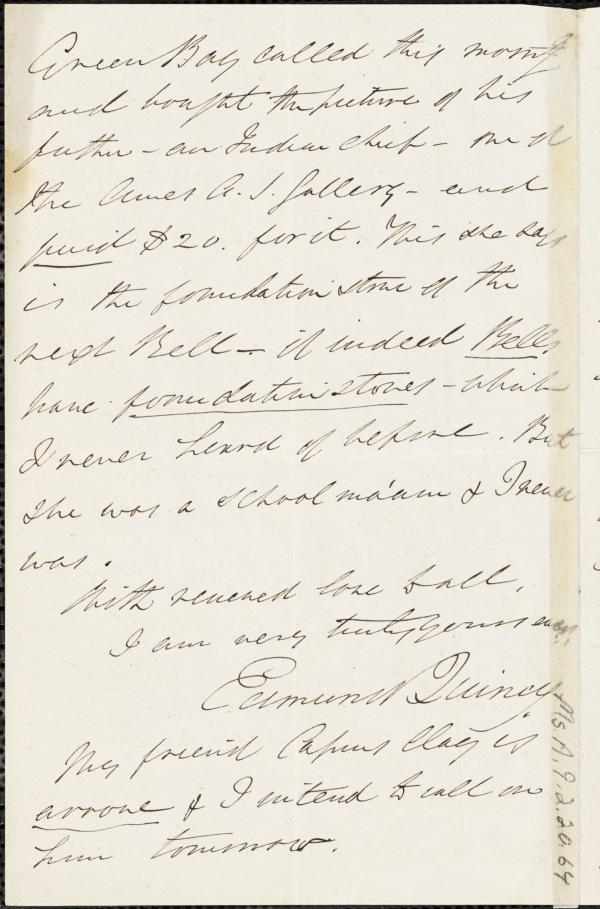 Green Bay called this morng
and bought the picture of his
father – an Indian chief – one of
the Ames A. S. Gallery – and
paid $20. for it. This she says
is the foundation stone of the
next Bell – if indeed Bells
have foundation stones – which
I never heard of before. But
she was a school ma'am & I never
was.
With renewed love to all,
I am very truly yours ever,
Edmund Quincy
My friend Casius Clay is
arrove & I intend to call on
him tomorrow.
Ms.A.9.2.20.64